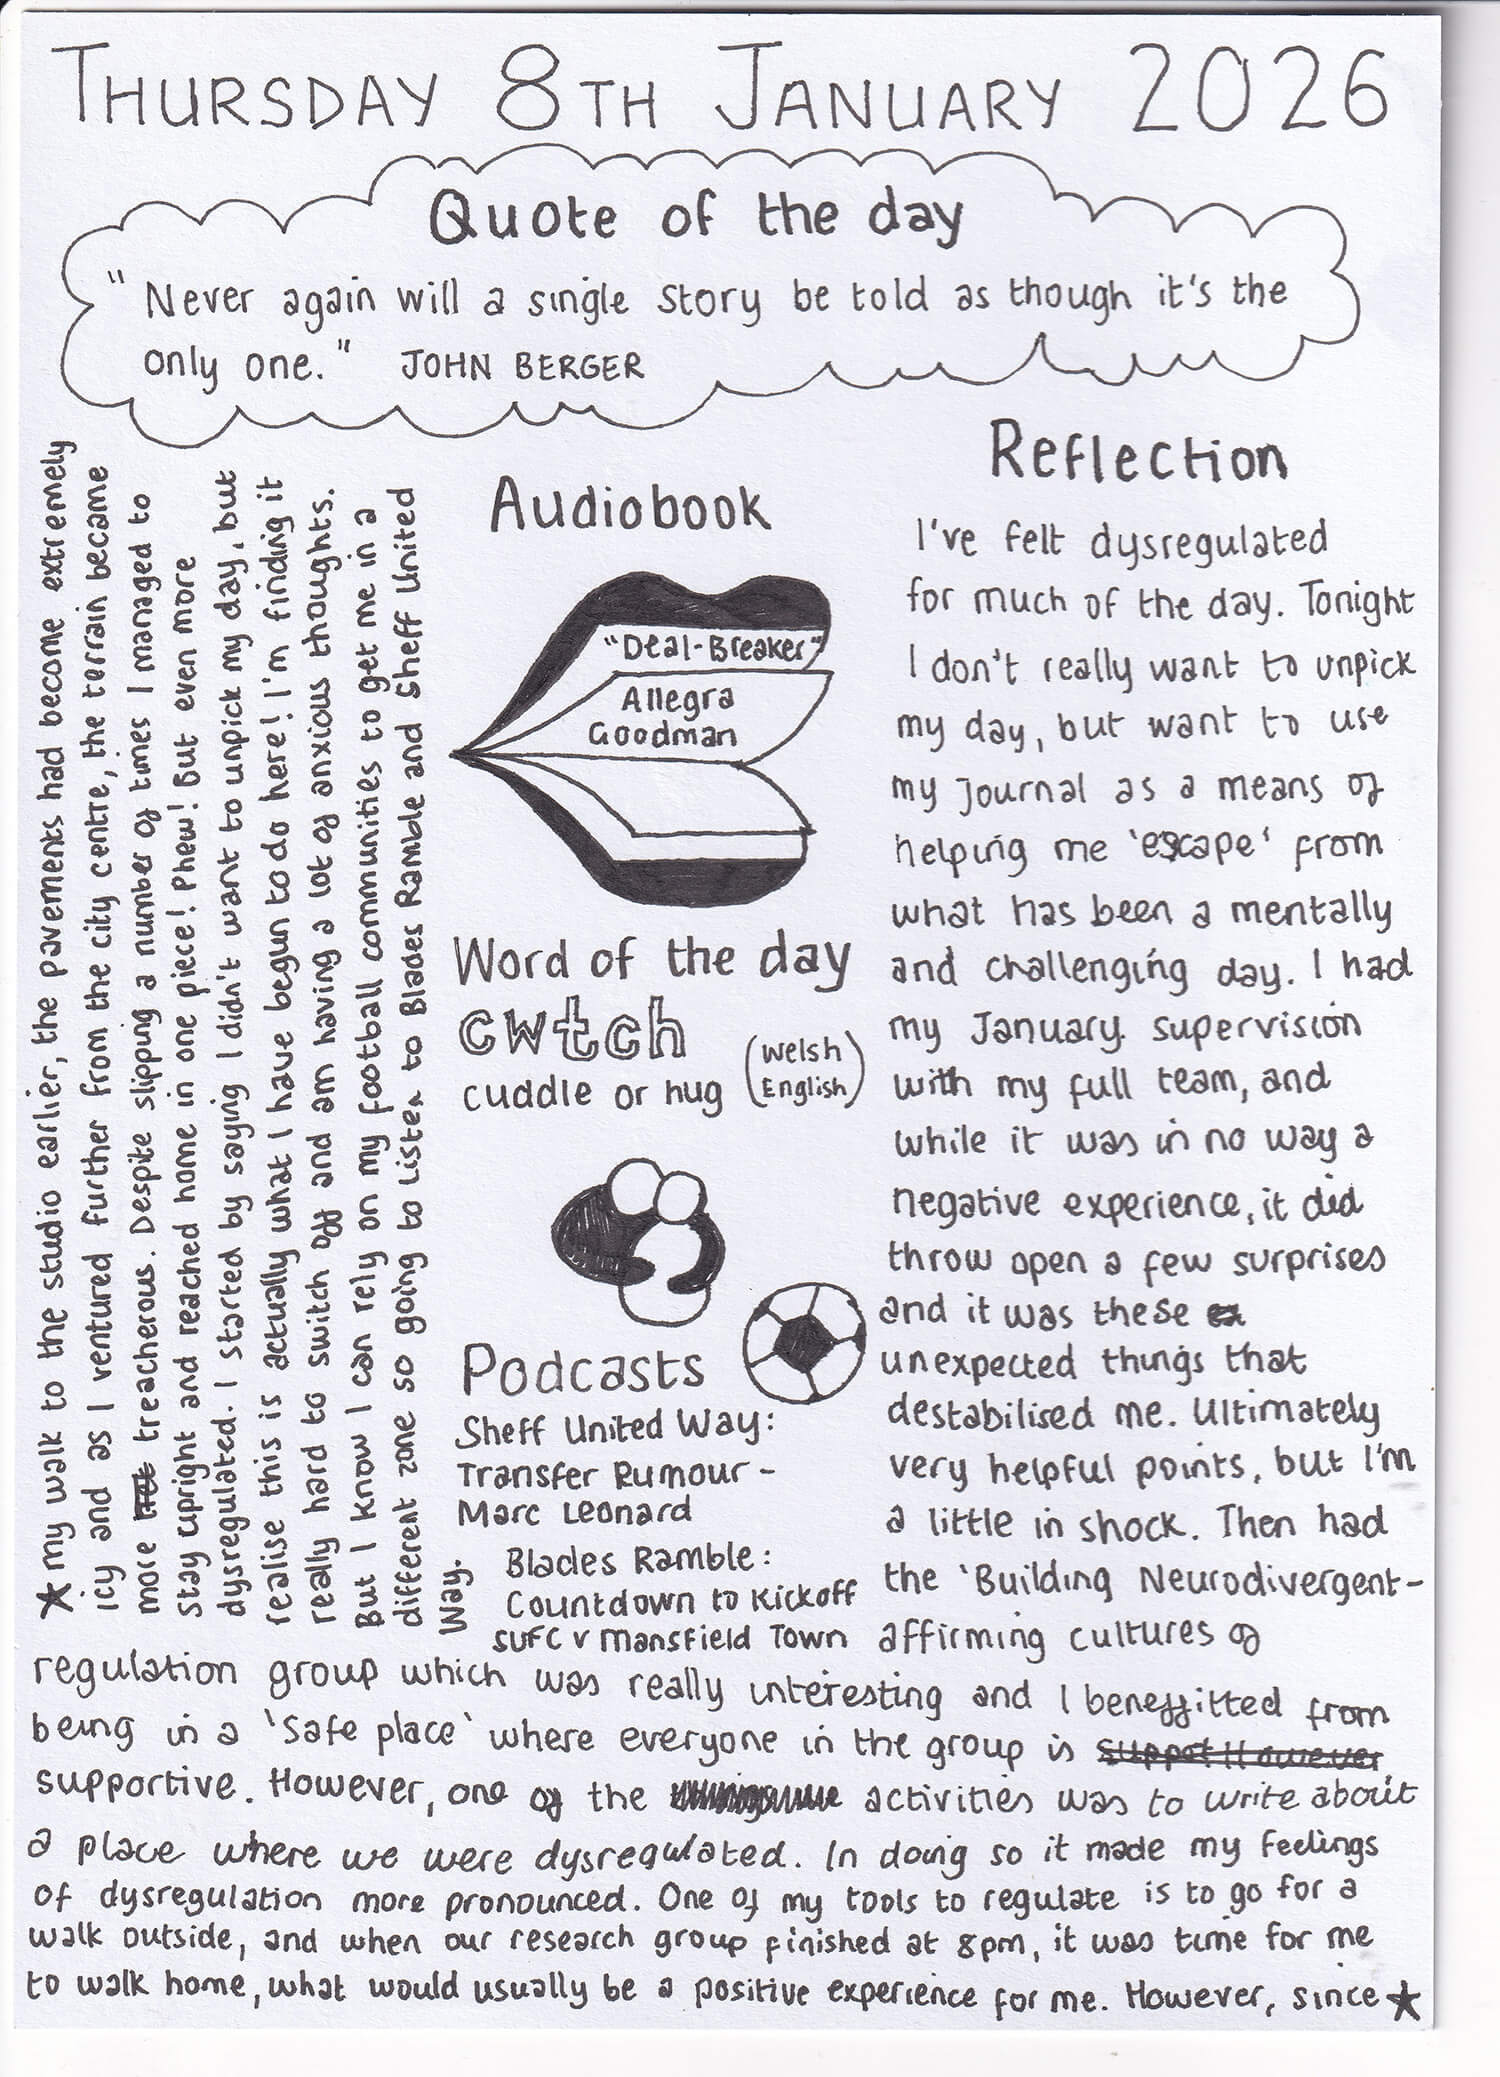 THURSDAY 8TH JANUARY 2026
Quote of the day
"Never again will a single story be told as though it's the
only one." JOHN BERGER
Audiobook
"Deal-Breaker"
Allegra
Goodman
Word of the day
cwtch
cuddle or hug (Welsh
English)
Podcasts
Sheff United Way:
Transfer Rumour -
Marc Leonard
Blades Ramble:
Countdown to Kickoff
SUFC v Mansfield Town
Reflection
I've felt dysregulated
for much of the day. Tonight
I don't really want to unpick
my day, but want to use
my journal as a means of
helping me 'escape' from
what has been a mentally
and challenging day. I had
my January supervision
with my full team, and
while it was in no way a
negative experience, it did
throw open a few surprises
and it was these
unexpected things that
destabilised me. Ultimately
very helpful points, but I'm
a little in shock. Then had
the 'Building Neurodivergent-
affirming cultures of
regulation group which was really interesting and I beneffitted from
being in a 'safe place' where everyone in the group is
supportive. However, one of the activities was to write about
a place where we were dysregulated. In doing so it made my feelings
of dysregulation more pronounced. One of my tools to regulate is to go for a
walk outside, and when our research group finished at 8pm, it was time for me
to walk home, what would usually be a positive experience for me. However, since ★
★ my walk to the studio earlier, the pavements had become extremely
icy and as I ventured further from the city centre, the terrain became
more treacherous. Despite slipping a number of times I managed to
stay upright and reached home in one piece! Phew! But even more
dysregulated. I started by saying I didn't want to unpick my day, but
realise this is actually what I have begun to do here! I'm finding it
really hard to switch off and am having a lot of anxious thoughts.
But I know I can rely on my football communities to get me in a
different zone so going to listen to Blades Ramble and Sheff United
Way.